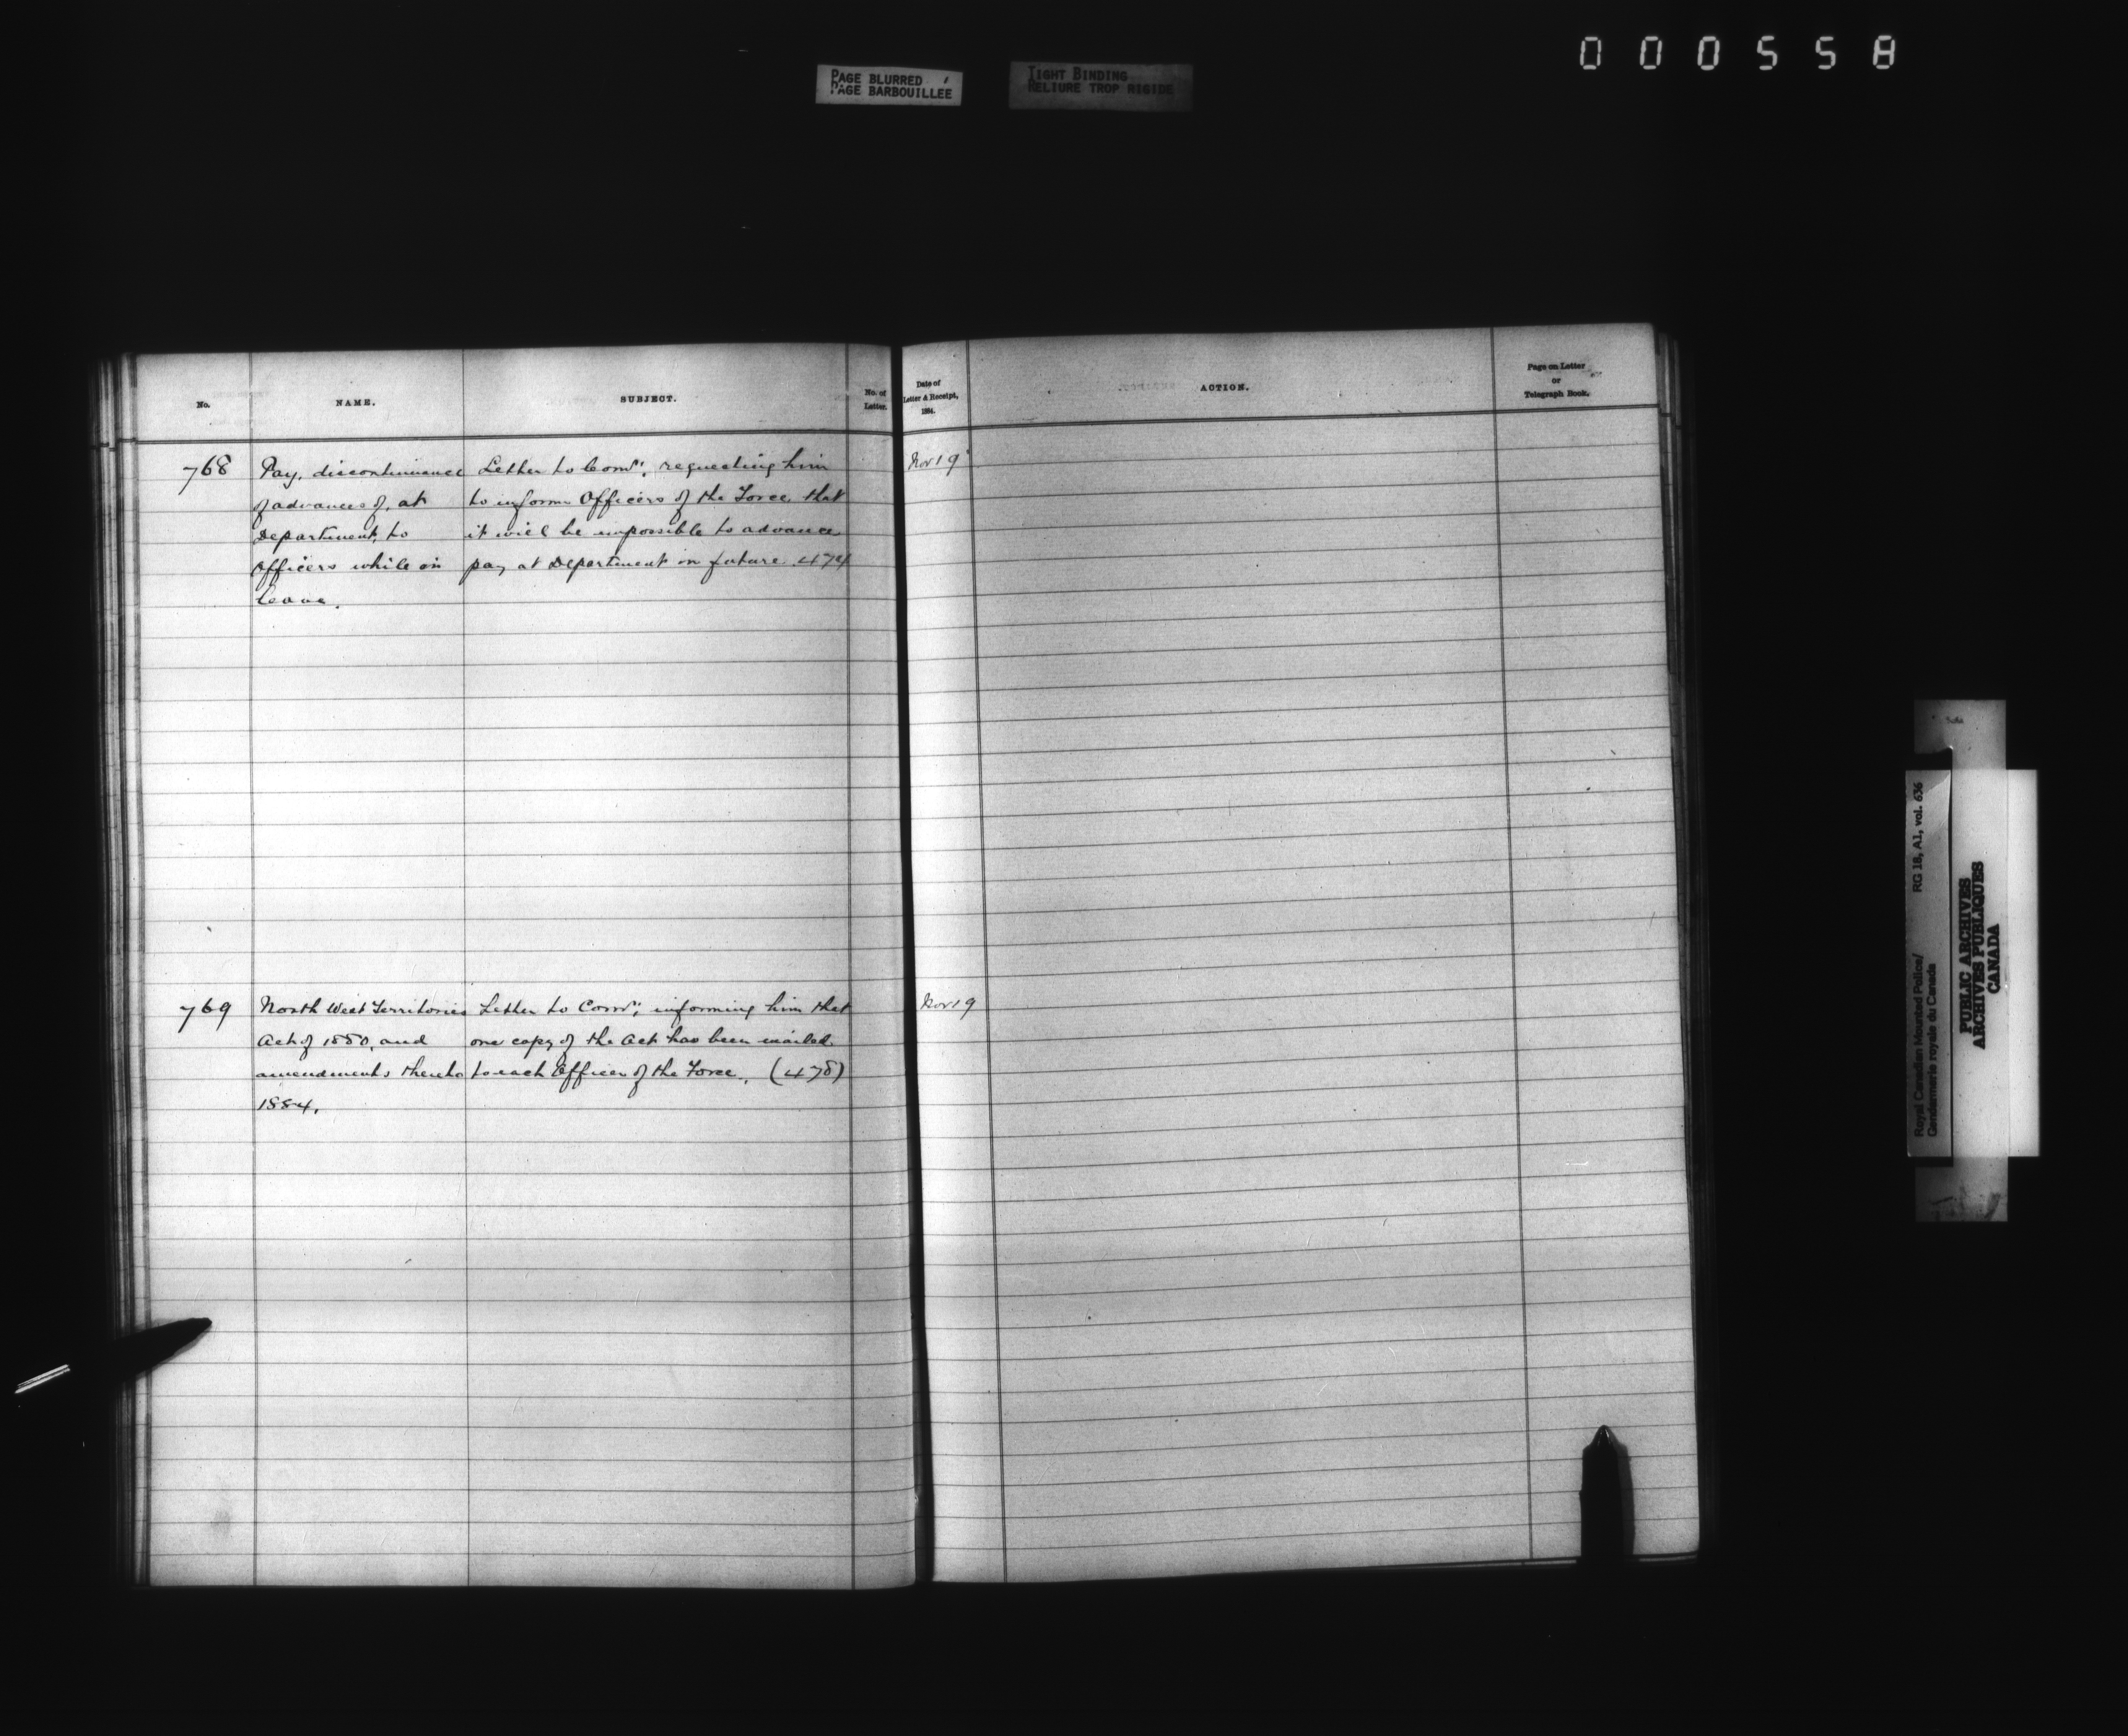 000558
PAGE BLURRED
PAGE BARBOUILLEE
TIGHT BINDING
RELIURE TROP RIGIDE
No.
NAME.
SUBJECT.
No. of
Letter.
Date of
Letter & Receipt,
1884.
ACTION.
Page on Letter
or
Telegraph Book.
768
Pay, discontinuance
of advances of, at
Department, to
Officers while on
leave.
Letter to Comr; requesting him
to inform Officers of the Force that
it will be impossible to advance
pay at Department in future. 474
Nov 19
769
North West Territories
Act of 1880, and
amendments thereto
1884.
Letter to Comr; informing him that
one copy of the Act has been mailed
to each Officer of the Force. (478)
Nov 19
Royal Canadian Mounted Police/
Gendarmerie royale du Canada
RG 18, A1, vol. 636
PUBLIC ARCHIVES
ARCHIVES PUBLIQUES
CANADA